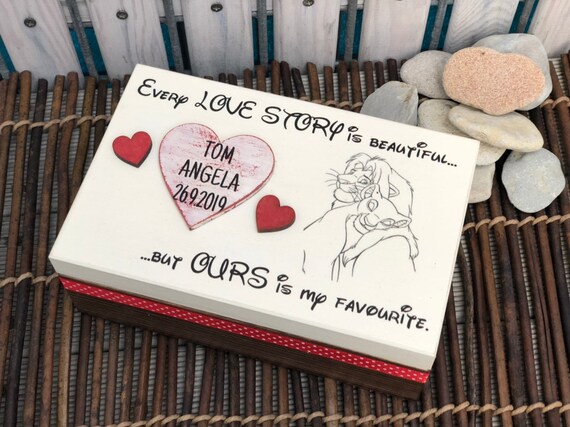 Every LOVE STORY is beautiful...
TOM
ANGELA
26.9.2019
...but OURS is my favourite.